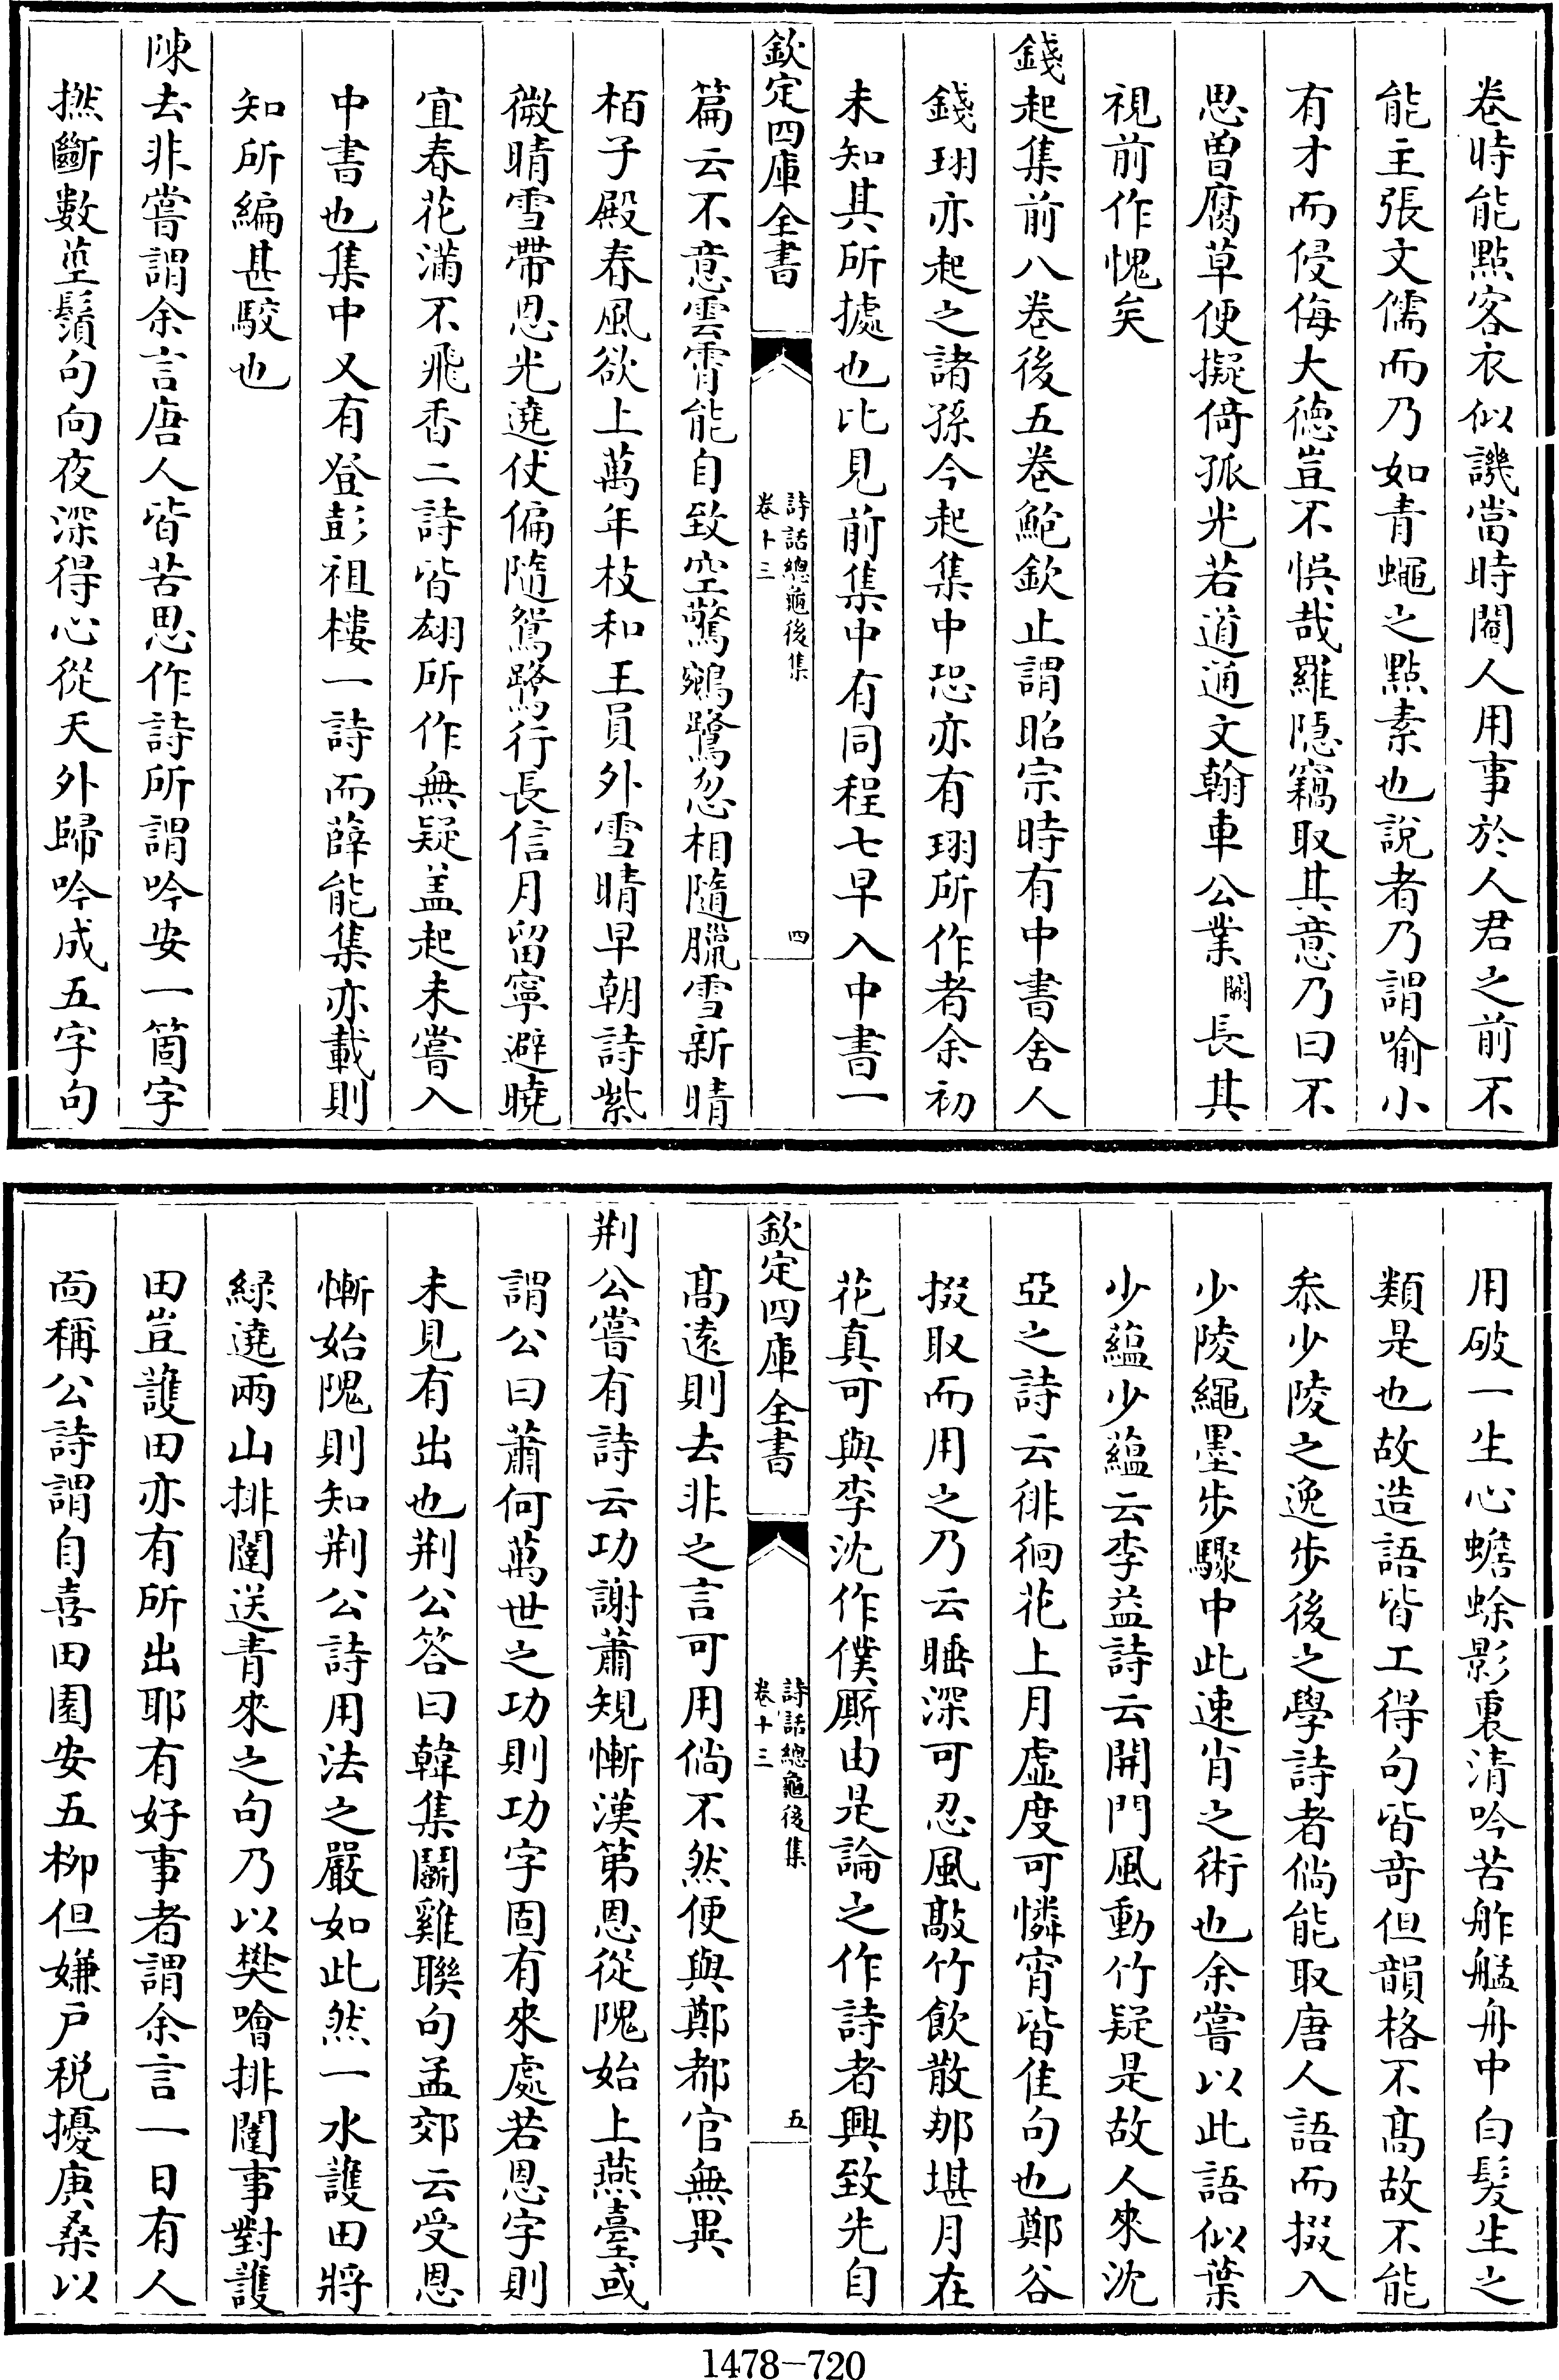 卷時能點客衣似譏當時閹人用事於人君之前不
能主張文儒而乃如青蠅之點素也說者乃謂喻小
有才而侵侮大德豈不悞哉羅隱竊取其意乃曰不
思曽腐草便擬倚孤光若道通文翰車公業闕長其
視前作愧矣
錢起集前八卷後五卷鮑欽止謂昭宗時有中書舍人
錢珝亦起之諸孫今起集中恐亦有珝所作者余初
未知其所據也比見前集中有同程七早入中書一
欽定四庫全書
詩話總龜後集
卷十三
四
篇云不意雲霄能自致空驚鵷鷺忽相隨臘雪新晴
栢子殿春風欲上萬年枝和王員外雪晴早朝詩紫
微晴雪帶恩光遶仗偏隨鴛鷺行長信月留寧避曉
宜春花滿不飛香二詩皆珝所作無疑盖起未嘗入
中書也集中又有登彭祖樓一詩而薛能集亦載則
知所編甚駮也
陳去非嘗謂余言唐人皆苦思作詩所謂吟安一箇字
撚斷數莖鬚句向夜深得心從天外歸吟成五字句
用破一生心蟾蜍影裏清吟苦舴艋舟中白髮生之
類是也故造語皆工得句皆奇但韻格不髙故不能
叅少陵之逸歩後之學詩者倘能取唐人語而掇入
少陵繩墨歩驟中此速肖之術也余嘗以此語似葉
少蘊少蘊云李益詩云開門風動竹疑是故人來沈
亞之詩云徘徊花上月虚度可憐宵皆佳句也鄭谷
掇取而用之乃云睡深可忍風敲竹飲散那堪月在
花真可與李沈作僕厮由是論之作詩者興致先自
欽定四庫全書
詩話總龜後集
卷十三
五
髙遠則去非之言可用倘不然便與鄭都官無異
荆公嘗有詩云功謝蕭規慚漢第恩從隗始上燕臺或
謂公曰蕭何萬世之功則功字固有來處若恩字則
未見有出也荆公答曰韓集鬭雞聯句孟郊云受恩
慚始隗則知荆公詩用法之嚴如此然一水護田將
緑遶兩山排闥送青來之句乃以樊噲排闥事對護
田豈護田亦有所出耶有好事者謂余言一日有人
面稱公詩謂自喜田園安五栁但嫌户税擾庚桑以
1478-720